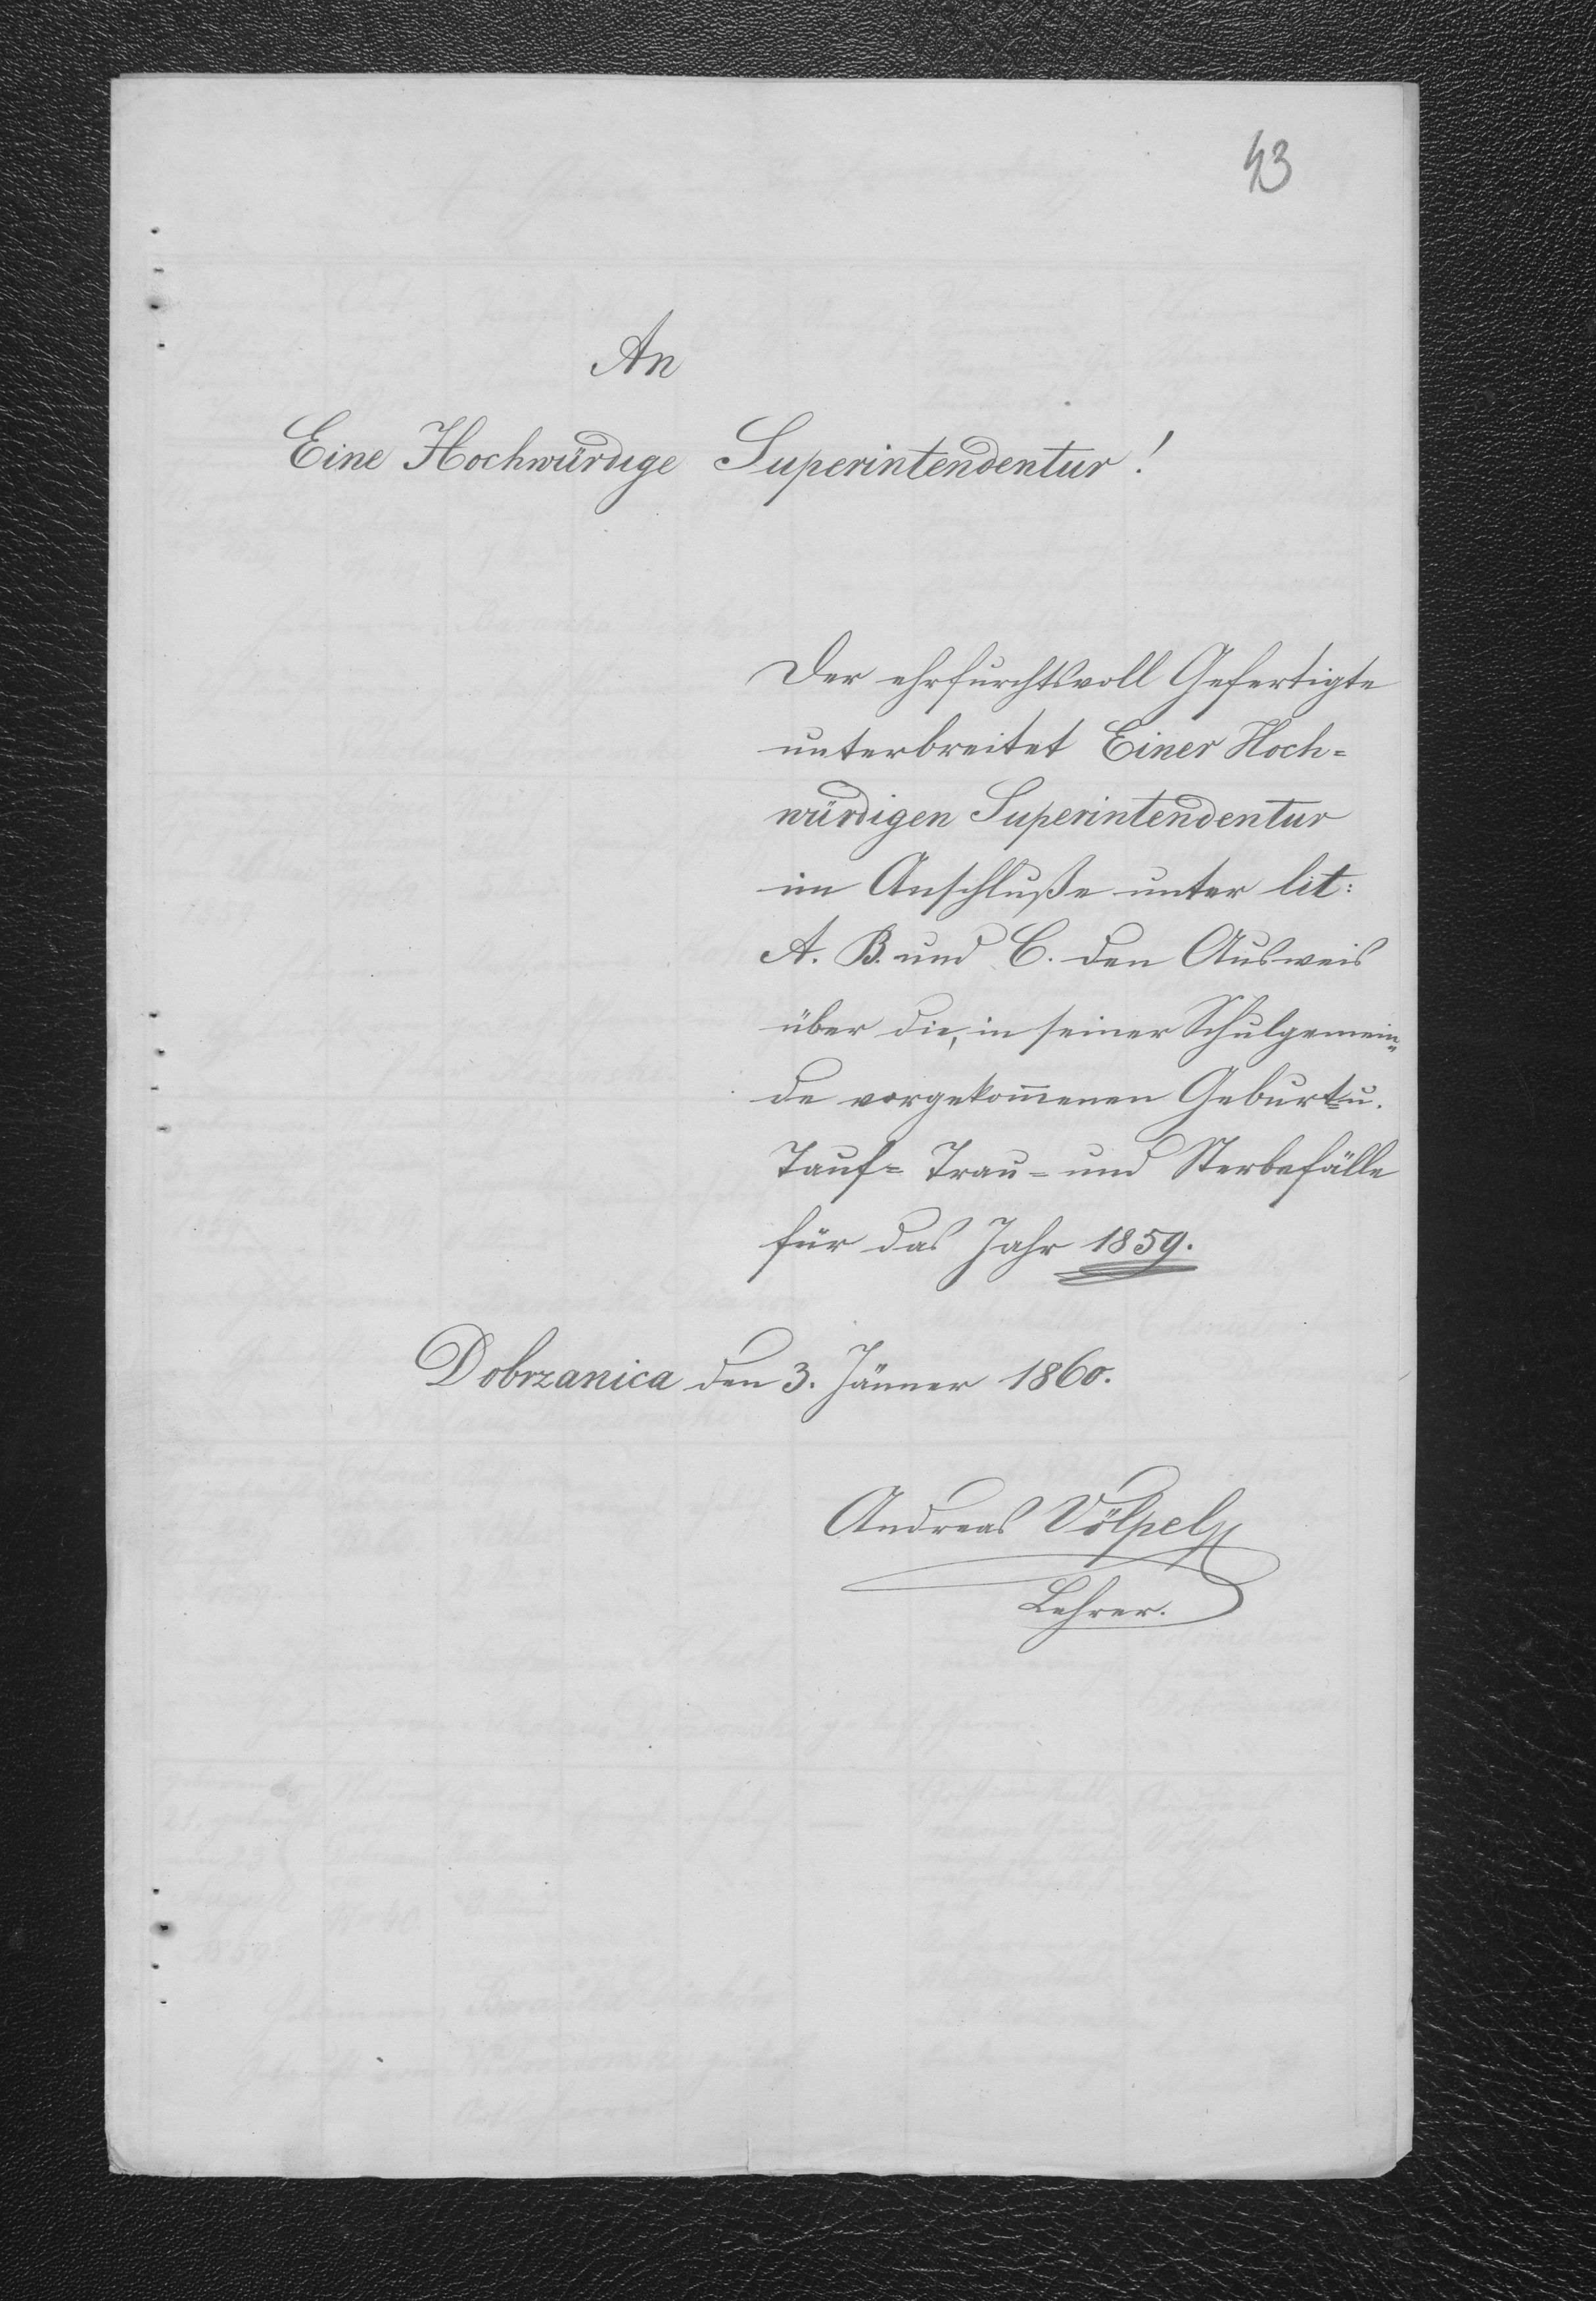 43
An
Eine Hochwürdige Superintendentur!
Der ehrfurchtsvoll Gefertigte
unterbreitet Einer Hoch=
würdigen Superintendentur
im Anschluße unter lit:
A. B. und C. den Ausweis
über die, in seiner Schulgemein=
de vorgekom̅enen Geburt= u.
Tauf= Trau= und Sterbefälle
für das Jahr 1859.
Dobrzanica den 3. Jänner 1860.
Andreas Völpel
Lehrer.